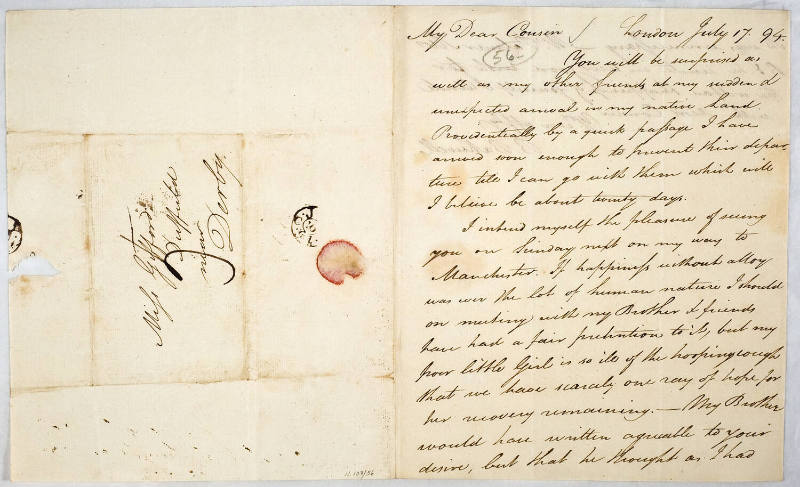 Miss Gifford
Duffield
near
Derby.
My Dear Cousin / London July 17. 94.
56
You will be surprised as
well as my other friends at my sudden &
unexpected arrival in my native Land.
Providentially by a quick passage I have
arrived soon enough to prevent their depar-
ture till I can go with them which will
I believe be about twenty days.
I intend myself the pleasure of seeing
you on Sunday next on my way to
Manchester. If happiness without alloy
was ever the lot of human nature I should
on meeting with my Brother & friends
have had a fair pretention to it, but my
poor little Girl is so ill of the hooping cough
that we have scarcely one ray of hope for
her recovery remaining. — My Brother
would have written agreeable to your
desire, but that he thought as I had